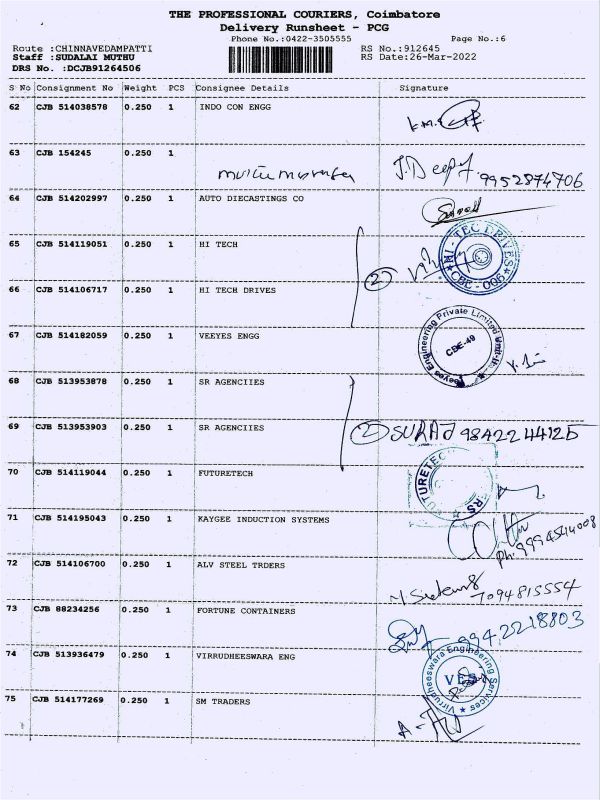 THE PROFESSIONAL COURIERS, Coimbatore
Delivery Runsheet - PCG
Phone No.:0422-3505555 Page No.:6
Route :CHINNAVEDAMPATTI RS No.:912645
Staff :SUDALAI MUTHU RS Date:26-Mar-2022
DRS No. :DCJB91264506
S No Consignment No Weight PCS Consignee Details Signature
62 CJB 514038578 0.250 1 INDO CON ENGG
63 CJB 154245 0.250 1
J.Deepy. 9952874706
64 CJB 514202997 0.250 1 AUTO DIECASTINGS CO
65 CJB 514119051 0.250 1 HI TECH
2 HI-TEC DRIVES CBE-006
66 CJB 514106717 0.250 1 HI TECH DRIVES
67 CJB 514182059 0.250 1 VEEYES ENGG
Veeyes Engineering Private Limited CBE-49
68 CJB 513953878 0.250 1 SR AGENCIIES
69 CJB 513953903 0.250 1 SR AGENCIIES
2 SURAJ 9842244125
70 CJB 514119044 0.250 1 FUTURETECH
FUTURETEC
71 CJB 514195043 0.250 1 KAYGEE INDUCTION SYSTEMS
72 CJB 514106700 0.250 1 ALV STEEL TRDERS
7094815554
73 CJB 88234256 0.250 1 FORTUNE CONTAINERS
9942218803
74 CJB 513936479 0.250 1 VIRRUDHEESWARA ENG
Virrudheeswara Engineering Services VES
75 CJB 514177269 0.250 1 SM TRADERS